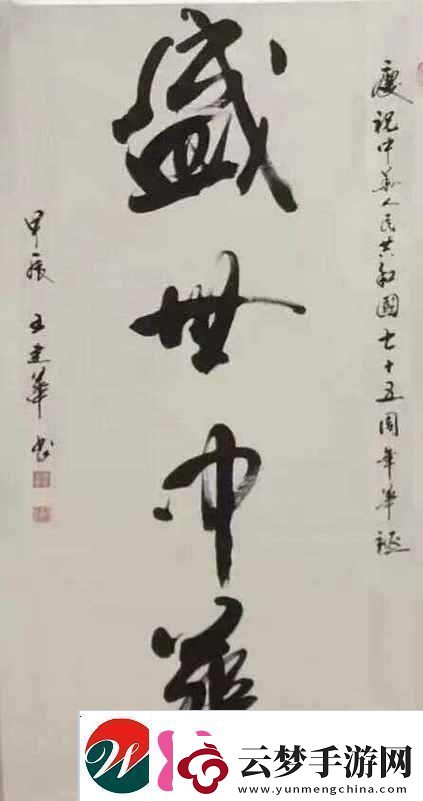 慶祝中華人民共和國七十五周年華誕
盛世中華
甲辰 王建華書
云梦手游网
www.yunmengchina.com